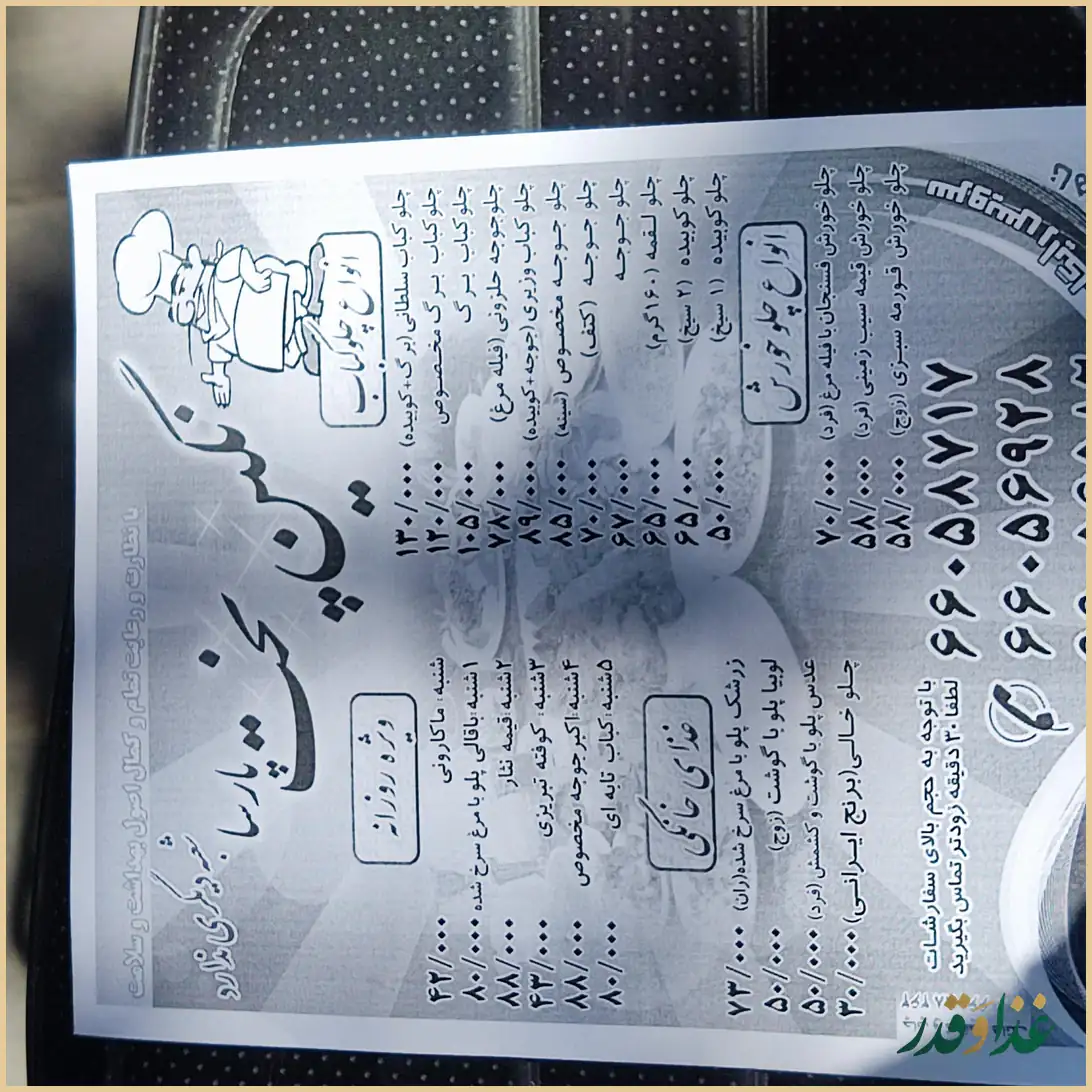 با نظارت و رعایت تمام و کمال اصول بهداشت و سلامت
نگین پخت پارسا
شعبه دیگری ندارد
انواع چلوکباب
چلو کباب سلطانی (برگ+کوبیده) ۱۳۰/۰۰۰
چلو کباب برگ مخصوص ۱۲۰/۰۰۰
چلو کباب برگ ۱۰۵/۰۰۰
چلو جوجه حلزونی (فیله مرغ) ۷۸/۰۰۰
چلو کباب وزیری (جوجه+کوبیده) ۸۹/۰۰۰
چلو جوجه مخصوص (سینه) ۸۵/۰۰۰
چلو جوجه (کتف) ۷۰/۰۰۰
چلو جوجه ۶۷/۰۰۰
چلو لقمه (۱۶۰ گرم) ۶۵/۰۰۰
چلو کوبیده (۲ سیخ) ۶۵/۰۰۰
چلو کوبیده (۱ سیخ) ۵۰/۰۰۰
انواع چلو خورش
چلو خورش فسنجان با فیله مرغ (فرد) ۷۰/۰۰۰
چلو خورش قیمه سیب زمینی (فرد) ۵۸/۰۰۰
چلو خورش قورمه سبزی (زوج) ۵۸/۰۰۰
ویژه روزانه
شنبه: ماکارونی ۴۲/۰۰۰
۱شنبه: باقالی پلو با مرغ سرخ شده ۸۰/۰۰۰
۲شنبه: قیمه نثار ۸۸/۰۰۰
۳شنبه: کوفته تبریزی ۴۳/۰۰۰
۴شنبه: اکبر جوجه مخصوص ۸۸/۰۰۰
۵شنبه: کباب تابه ای ۸۰/۰۰۰
غذای خانگی
زرشک پلو با مرغ سرخ شده (ران) ۷۳/۰۰۰
لوبیا پلو با گوشت (زوج) ۵۰/۰۰۰
عدس پلو با گوشت و کشمش (فرد) ۵۰/۰۰۰
چلو خالی (برنج ایرانی) ۳۰/۰۰۰
۶۶۰۵۸۷۱۷
۶۶۰۵۶۹۲۸
با توجه به حجم بالای سفارشات
لطفا ۳۰ دقیقه زودتر تماس بگیرید
غذا و قدر